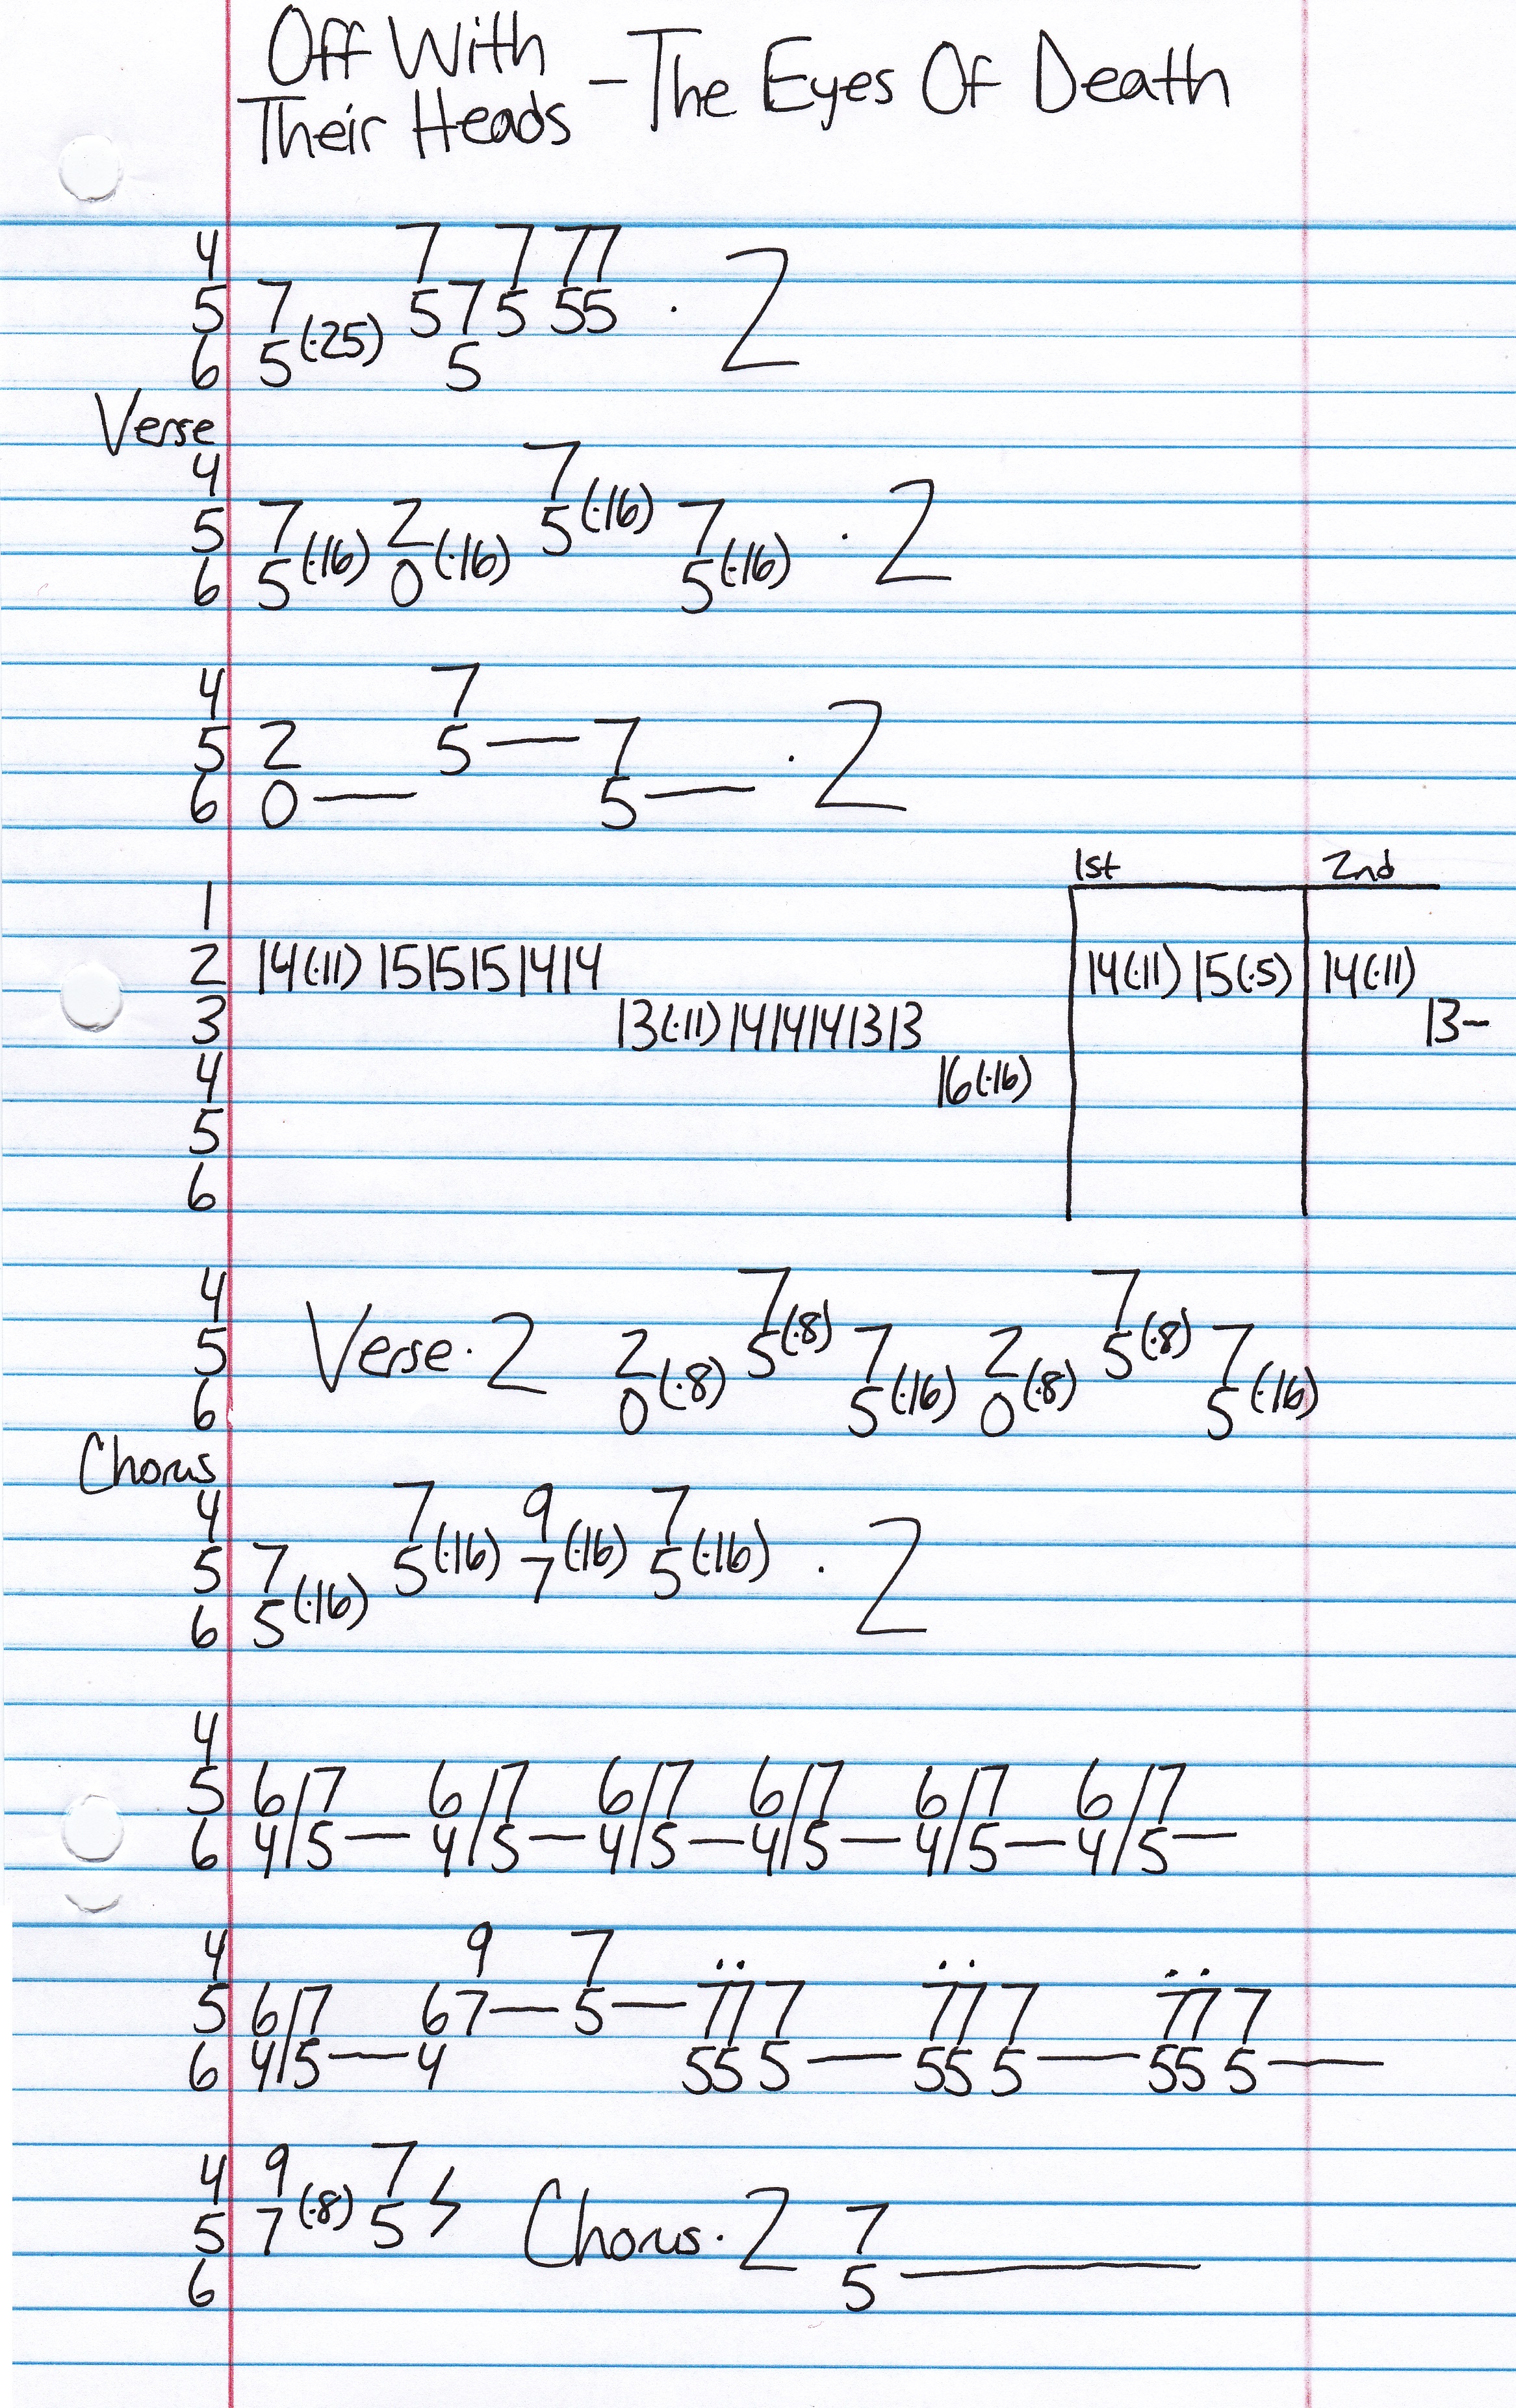 Off With
Their Heads - The Eyes Of Death
4 7 7 77
5 7 57 5 55 · 2
6 5(·25) 5
Verse
4 7
5 7 2 5(·16) 7 · 2
6 5(·16) 0(·16) 5(·16)
4 7
5 2 5— 7 · 2
6 0— 5—
1st 2nd
1
2 14(·11) 1515151414 14(·11) 15(·5) 14(·11)
3 13(·11) 1414141313 13-
4 16(·16)
5
6
4 7 7
5 Verse·2 2 5(·8) 7 2 5(·8) 7
6 0(·8) 5(·16) 0(·8) 5(·16)
Chorus
4 7 9 7
5 7 5(·16) 7(·16) 5(·16) · 2
6 5(·16)
4
5 6/7 6/7 6/7 6/7 6/7 6/7
6 4/5— 4/5— 4/5— 4/5— 4/5— 4/5—
4 9 7
5 6/7 67— 5— 777 777 777
6 4/5— 4 555— 555— 555—
4 9 7
5 7(·8) 5 Chorus·2 7
6 5—